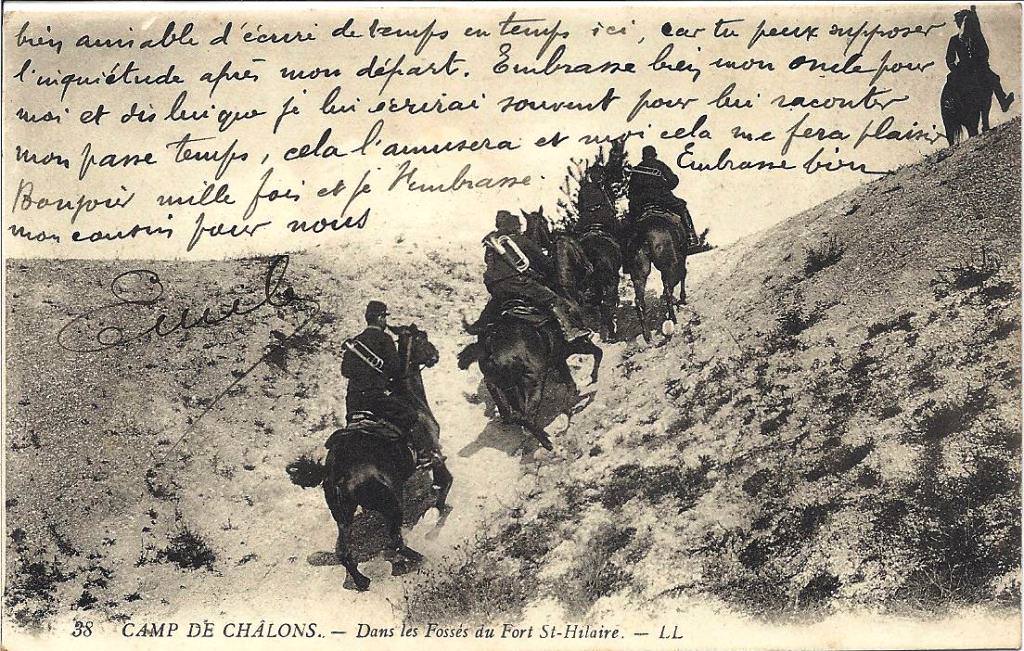 bien aimable d'écrire de temps en temps ici, car tu peux supposer
l'inquiétude après mon départ. Embrasse bien mon oncle pour
moi et dis lui que je lui écrirai souvent pour lui raconter
mon passe temps, cela l'amusera et moi cela me fera plaisir
Embrasse bien
Bonjour mille fois et je t'embrasse.
mon cousin pour nous
Emile
38 CAMP DE CHÂLONS. — Dans les Fossés du Fort St-Hilaire. — LL